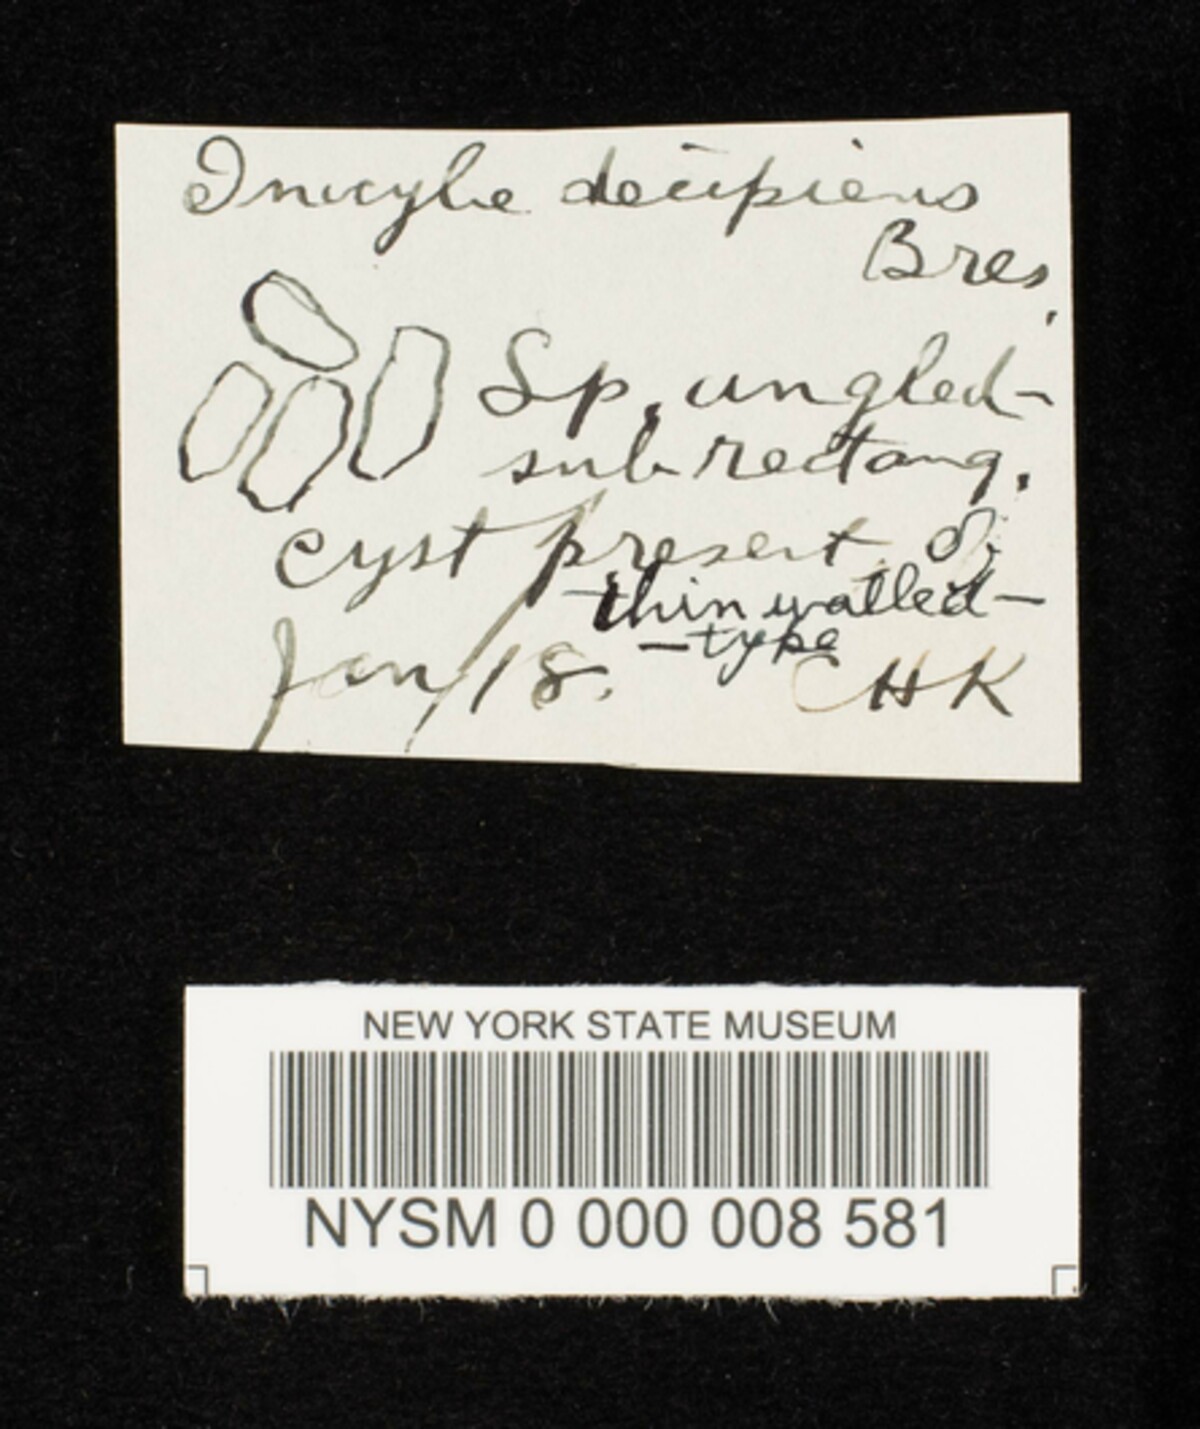 Inocybe decipiens
Bres.
Sp. angled-
subrectang.
Cyst present of
thin walled-
-type
Jan/18. CHK
NEW YORK STATE MUSEUM
NYSM 0 000 008 581